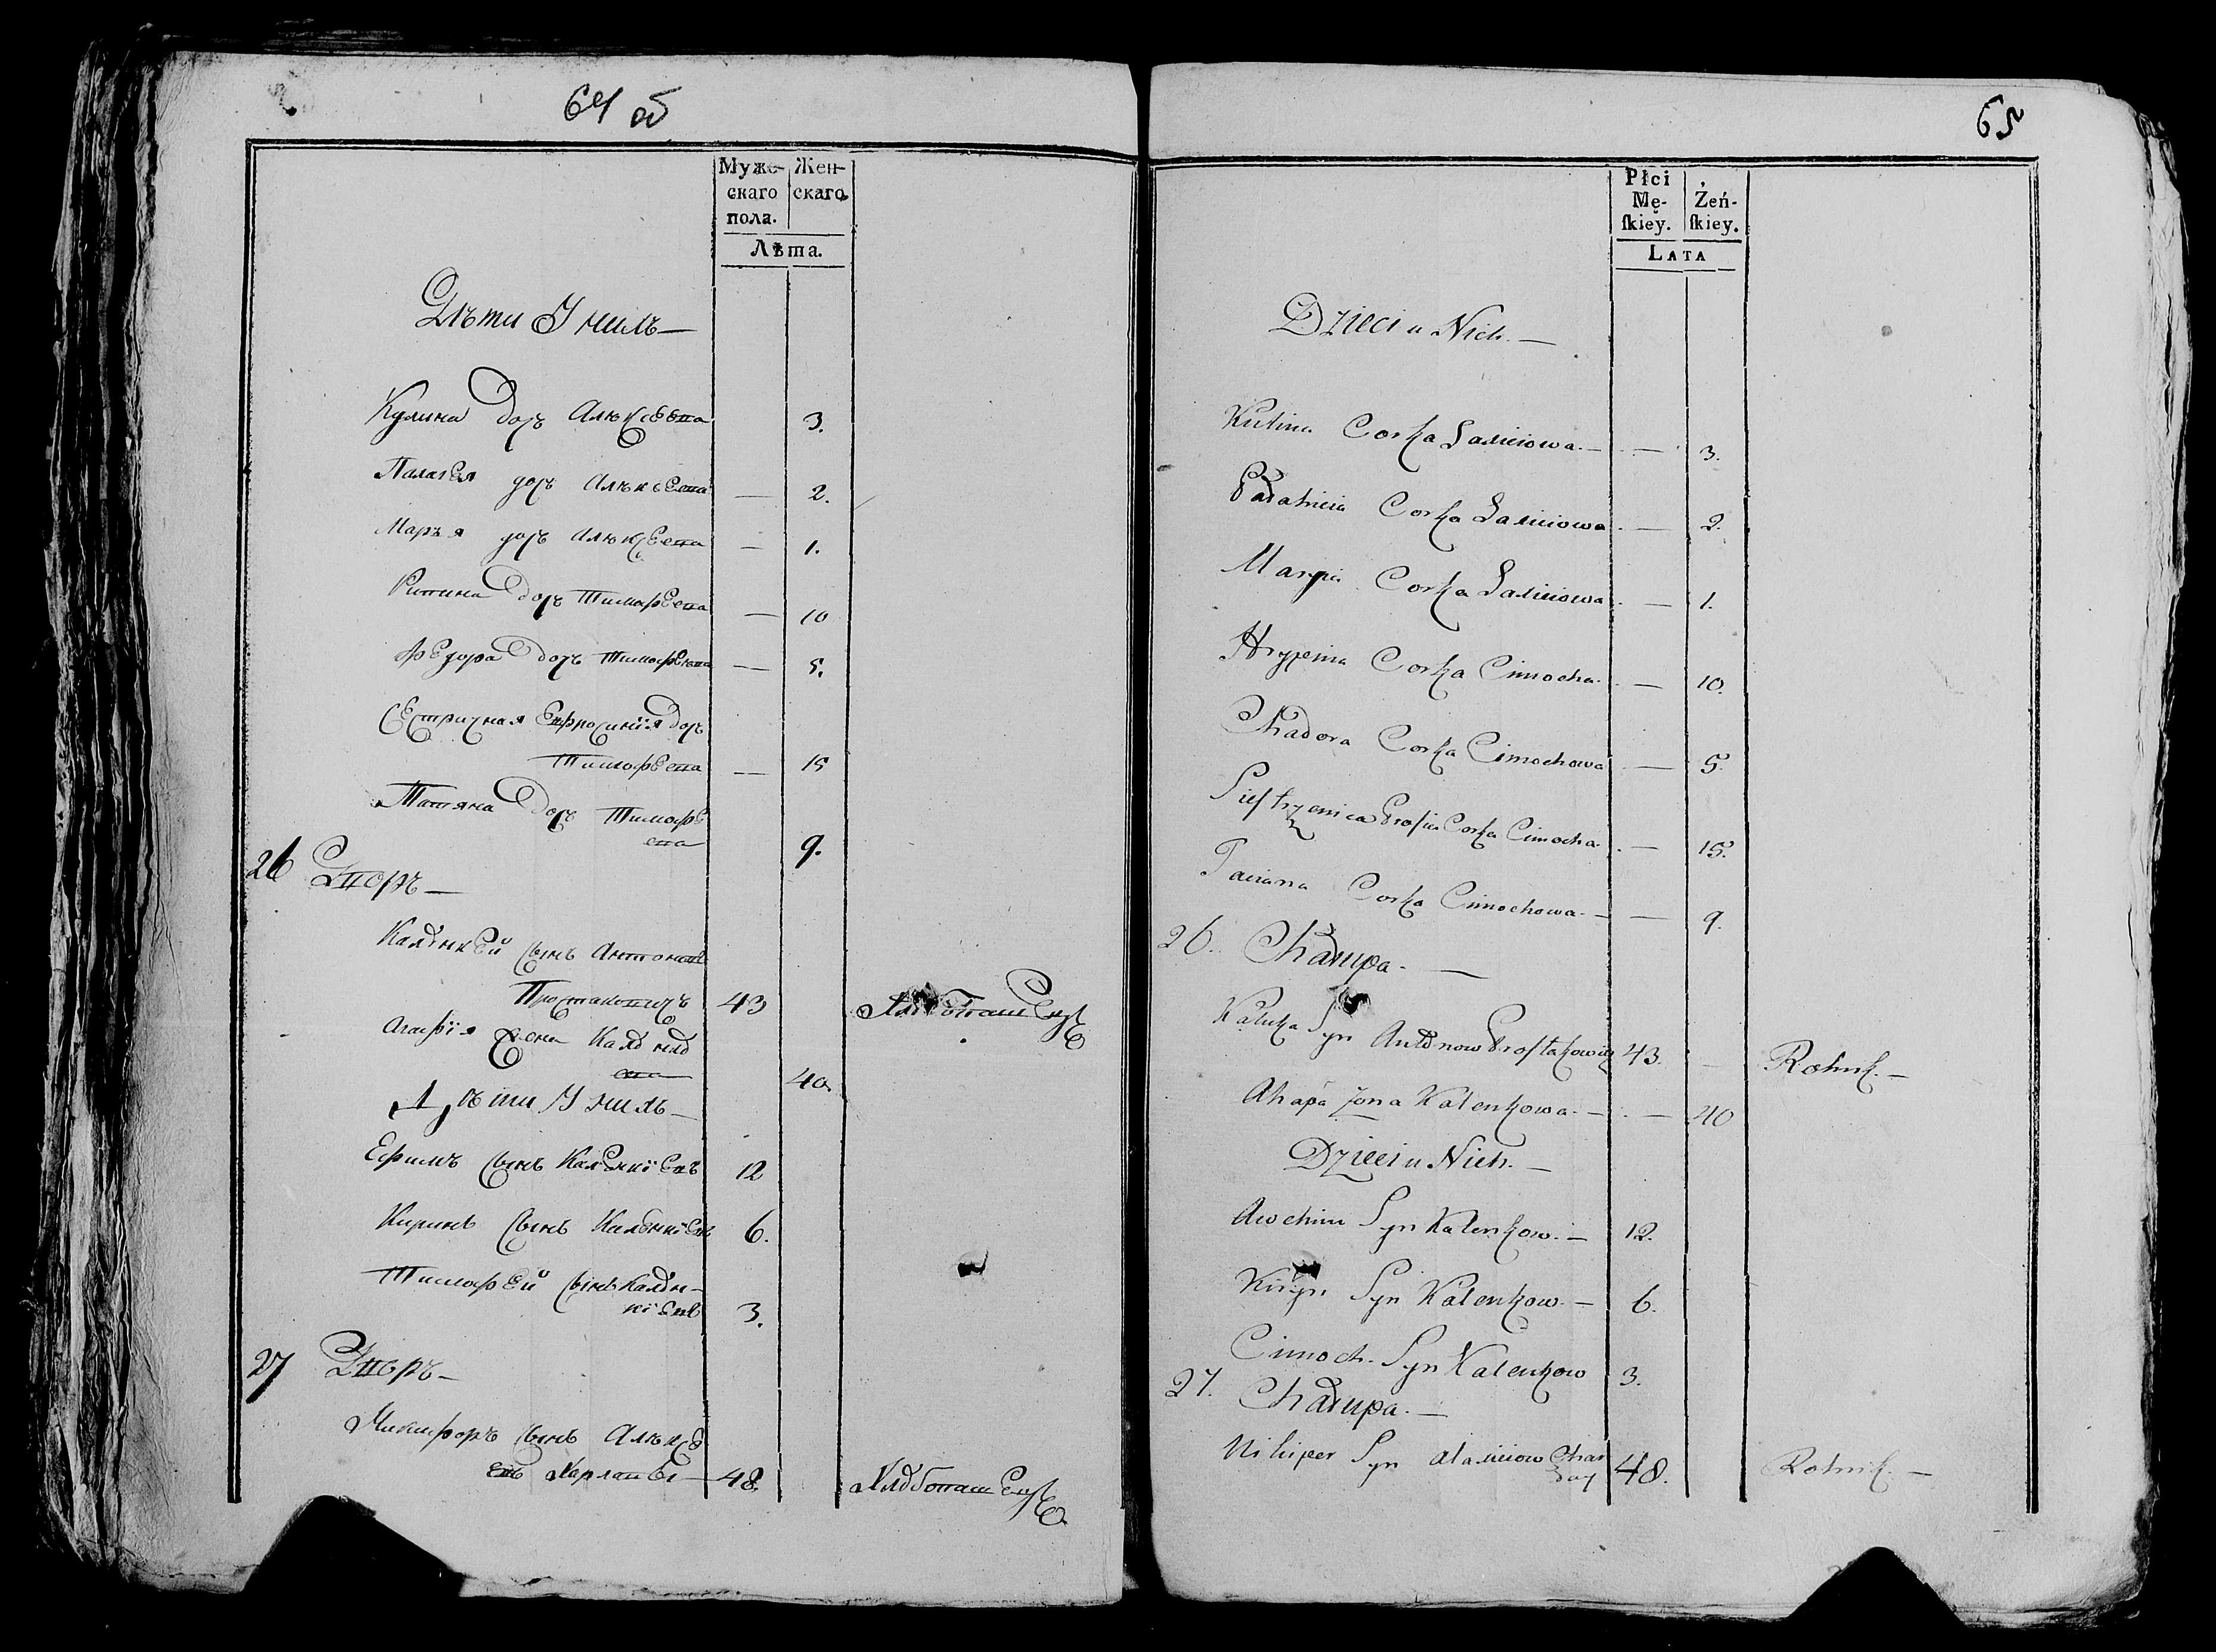 64 об
Муже-
скаго
пола.
Жен-
скаго
Лѣта.
Дѣти У нихъ —
Кулина дочь Алексѣева 3.
Палагея дочь Алексѣева — 2.
Марья дочь Алексѣева — 1.
дочь Тимофеева — 10
Федора дочь Тимофеева — 5.
Сестричная Ефросинія дочь
Тимофеева — 15
Татяна дочь Тимофе
ева 9.
26 Дворъ —
Календей сынъ Антоновъ
43 Хлебопашецъ
Агафія жена
ева 40.
Дѣти У нихъ —
Ефимъ сынъ 12
сынъ 6.
Тимофей сынъ
3.
27 Дворъ —
Никифоръ сынъ Алексе
евъ 48. Хлебопашецъ
65
Płci
Mę-
skiey.
Żeń-
skiey.
LATA
Dzieci u Nich. —
Kulina Corka — 3.
Corka — 2.
Maryia Corka — 1.
Hrypina Corka Cimocha — 10.
Chadora Corka Cimochowa — 5.
Siestrzenica Prosia Corka Cimocha — 15.
Taciana Corka Cimochowa — 9.
26. Chałupa. —
Syn Antonow Prostakowicz 43. — Rolnik. —
Ahapa Żona Kalenkowa. — 40
Dzieci u Nich. —
Awchim Syn Kalenkow. — 12.
Kiryn Syn Kalenkow. — 6.
Cimoch Syn Kalenkow 3.
27. Chałupa. —
Nikiper Syn 48. Rolnik. —